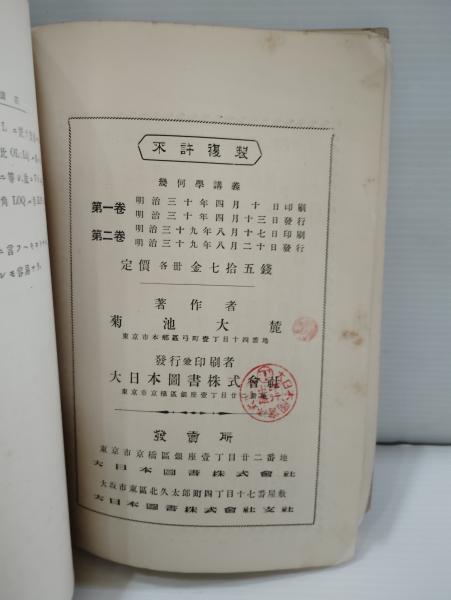 不許複製
幾何學講義
第一卷
明治三十年四月十日印刷
明治三十年四月十三日發行
第二卷
明治三十九年八月十七日印刷
明治三十九年八月二十日發行
定價各冊金七拾五錢
著作者
菊池大麓
東京市本鄉區弓町壹丁目十四番地
發行兼印刷者
大日本圖書株式會社
東京市京橋區銀座壹丁目廿二番地
發賣所
東京市京橋區銀座壹丁目廿二番地
大日本圖書株式會社
大坂市東區北久太郎町四丁目十七番屋敷
大日本圖書株式會社支社